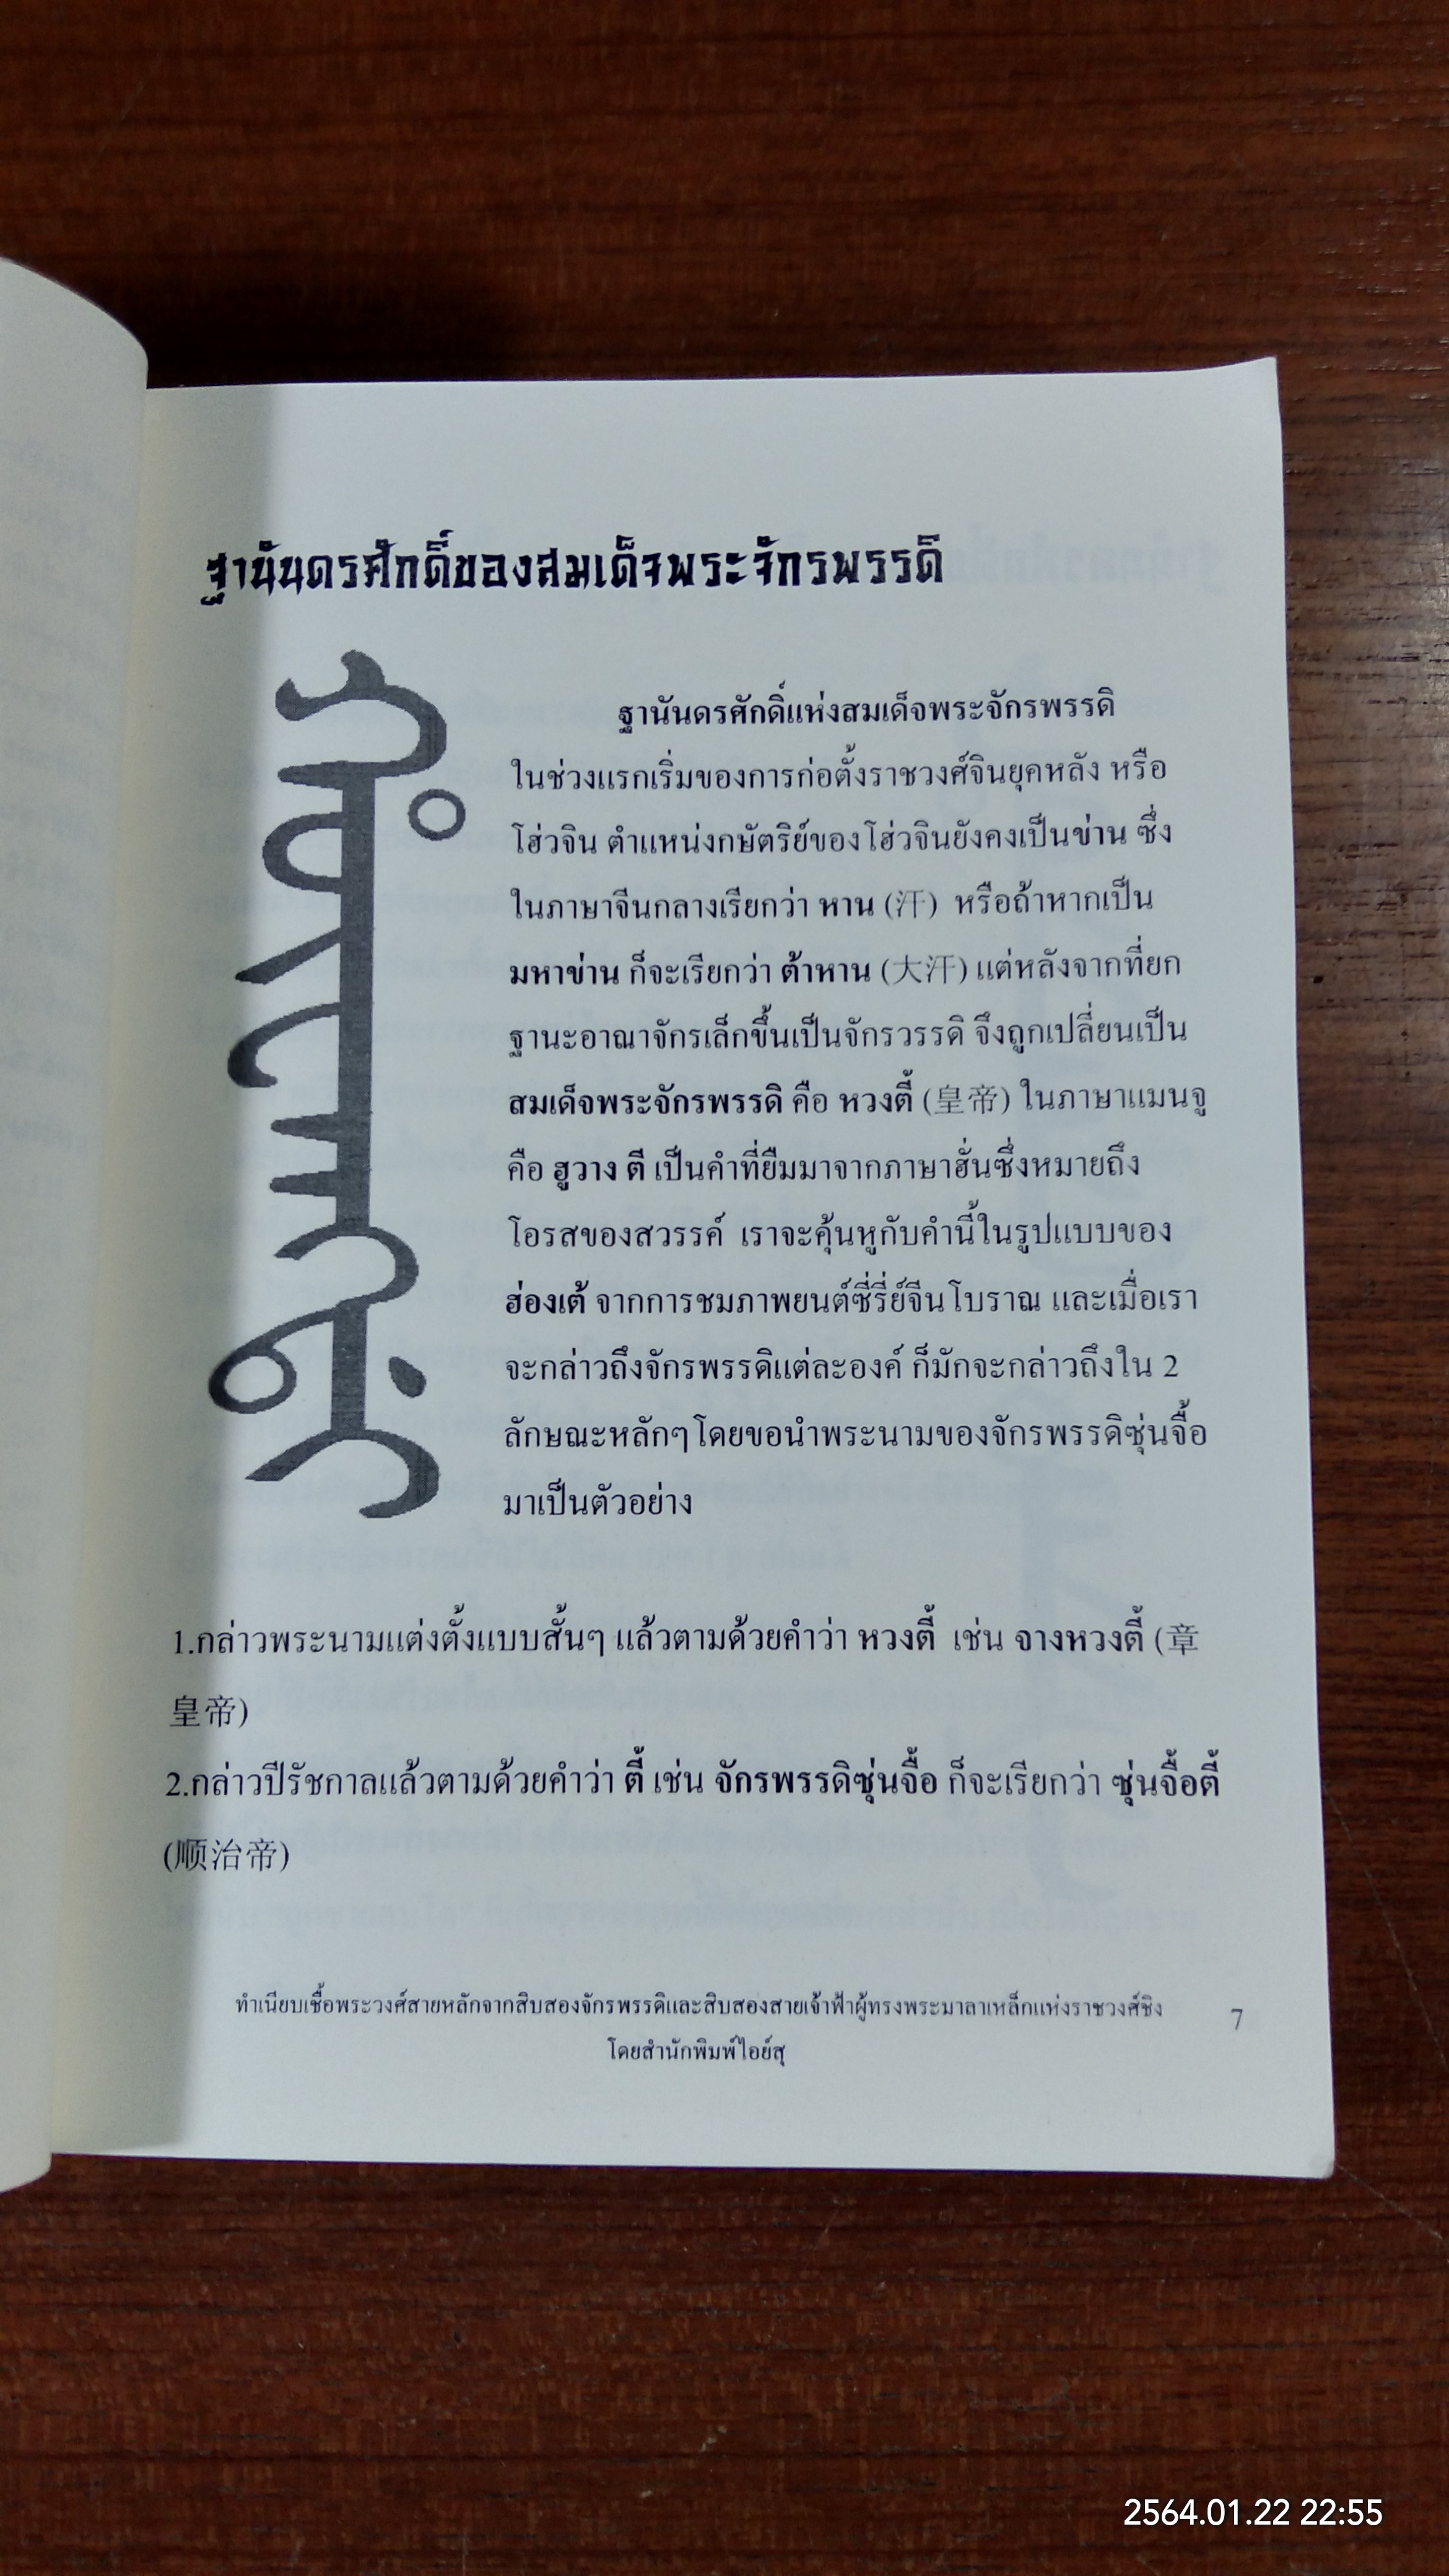 ฐานันดรศักดิ์ของสมเด็จพระจักรพรรดิ
ฐานันดรศักดิ์แห่งสมเด็จพระจักรพรรดิ
ในช่วงแรกเริ่มของการก่อตั้งราชวงศ์จินยุคหลัง หรือ
โฮ่วจิน ตำแหน่งกษัตริย์ของโฮ่วจินยังคงเป็นข่าน ซึ่ง
ในภาษาจีนกลางเรียกว่า หาน (汗) หรือถ้าหากเป็น
มหาข่าน ก็จะเรียกว่า ต้าหาน (大汗) แต่หลังจากที่ยก
ฐานะอาณาจักรเล็กขึ้นเป็นจักรวรรดิ จึงถูกเปลี่ยนเป็น
สมเด็จพระจักรพรรดิ คือ หวงตี้ (皇帝) ในภาษาแมนจู
คือ ฮูวาง ตี เป็นคำที่ยืมมาจากภาษาฮั่นซึ่งหมายถึง
โอรสของสวรรค์ เราจะคุ้นหูกับคำนี้ในรูปแบบของ
ฮ่องเต้ จากการชมภาพยนต์ซี่รี่ย์จีนโบราณ และเมื่อเรา
จะกล่าวถึงจักรพรรดิแต่ละองค์ ก็มักจะกล่าวถึงใน 2
ลักษณะหลักๆโดยขอนำพระนามของจักรพรรดิซุ่นจื้อ
มาเป็นตัวอย่าง
1.กล่าวพระนามแต่งตั้งแบบสั้นๆ แล้วตามด้วยคำว่า หวงตี้ เช่น จางหวงตี้ (章
皇帝)
2.กล่าวปีรัชกาลแล้วตามด้วยคำว่า ตี้ เช่น จักรพรรดิซุ่นจื้อ ก็จะเรียกว่า ซุ่นจื้อตี้
(顺治帝)
ทำเนียบเชื้อพระวงศ์สายหลักจากสิบสองจักรพรรดิและสิบสองสายเจ้าฟ้าผู้ทรงพระมาลาเหล็กแห่งราชวงศ์ชิง 7
โดยสำนักพิมพ์ไอย์สุ
2564.01.22 22:55